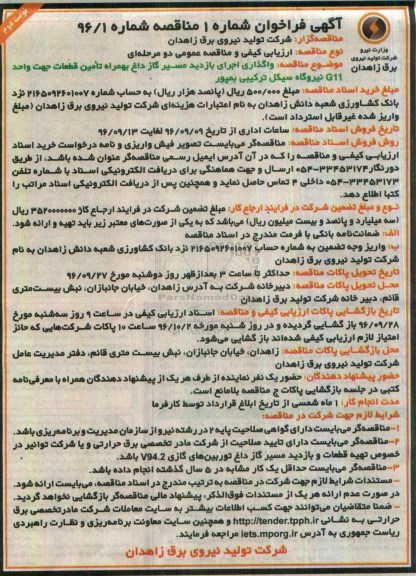 نوبت دوم
آگهی فراخوان شماره ۱ مناقصه شماره ۹۶/۱
وزارت نیرو
شرکت تولید نیروی
برق زاهدان
مناقصه‌گزار: شرکت تولید نیروی برق زاهدان
نوع مناقصه: ارزیابی کیفی و مناقصه عمومی دو مرحله‌ای
موضوع مناقصه: واگذاری اجرای بازدید مسیر گاز داغ بهمراه تأمین قطعات جهت واحد
G11 نیروگاه سیکل ترکیبی بمپور
مبلغ خرید اسناد مناقصه: مبلغ ۵۰۰/۰۰۰ ریال (پانصد هزار ریال) به حساب شماره ۲۱۶۵۰۹۲۶۰۱۰۰۷ نزد
بانک کشاورزی شعبه دانش زاهدان به نام اعتبارات هزینه‌ای شرکت تولید نیروی برق زاهدان (مبلغ
واریز شده غیرقابل استرداد است).
تاریخ فروش اسناد مناقصه: ساعات اداری از تاریخ ۹۶/۰۹/۰۹ لغایت ۹۶/۰۹/۱۳
روش فروش اسناد مناقصه: مناقصه‌گر می‌بایست تصویر فیش واریزی و نامه درخواست خرید اسناد
ارزیابی کیفی و مناقصه را که در آن آدرس ایمیل رسمی مناقصه‌گر عنوان شده باشد، از طریق
دورنگار ۳۳۴۵۳۱۷۳-۰۵۴ ارسال و جهت هماهنگی برای دریافت الکترونیکی اسناد با شماره تلفن
۳۳۴۵۳۱۷۳-۰۵۴ داخلی ۴ تماس حاصل نماید و همچنین پس از دریافت الکترونیکی اسناد مراتب را
کتبا اعلام دهد.
نوع و مبلغ تضمین شرکت در فرایند ارجاع کار: مبلغ تضمین شرکت در فرایند ارجاع کار ۳۵۲۰۰۰۰۰۰۰ ریال
(سه میلیارد و پانصد و بیست میلیون ریال) می‌باشد که به یکی از صورت‌های معتبر زیر باید تهیه و ارائه شود.
الف: ضمانت‌نامه بانکی با فرمت مندرج در اسناد مناقصه
ب: واریز وجه تضمین به شماره حساب ۲۱۶۵۰۹۲۶۰۱۰۰۷ نزد بانک کشاورزی شعبه دانش زاهدان به نام
شرکت تولید نیروی برق زاهدان
تاریخ تحویل پاکات مناقصه: حداکثر تا ساعت ۳ بعدازظهر روز دوشنبه مورخ ۹۶/۰۹/۲۷
محل تحویل پاکات مناقصه: دبیرخانه شرکت به آدرس زاهدان، خیابان جانبازان، نبش بیست‌متری
قائم، دبیر خانه شرکت تولید نیروی برق زاهدان
تاریخ بازگشایی پاکات مناقصه: اسناد ارزیابی کیفی در ساعت ۹ روز سه‌شنبه مورخ
۹۶/۰۹/۲۸ باز گشایی گردیده و در روز شنبه مورخه ۹۶/۱۰/۲ ساعت ۱۰ پاکات شرکت‌هایی که حائز
امتیاز لازم ارزیابی کیفی شده‌اند باز گشایی می‌شود.
محل بازگشایی پاکات مناقصه: زاهدان، خیابان جانبازان، نبش بیست متری قائم، دفتر مدیریت عامل
شرکت تولید نیروی برق زاهدان
حضور پیشنهاد دهندگان: حضور یک نفر نماینده از طرف هر یک از پیشنهاد دهندگان همراه با معرفی‌نامه
کتبی در جلسه بازگشایی پاکات ج مناقصه بلامانع است.
مدت انجام کار: ۱ ماه شمسی از تاریخ ابلاغ قرارداد توسط کارفرما
شرایط لازم جهت شرکت در مناقصه:
۱-مناقصه‌گر می‌بایست دارای گواهی صلاحیت پایه ۲ در رشته نیرو از سازمان مدیریت و برنامه‌ریزی باشد.
۲-مناقصه‌گر می‌بایست دارای تایید صلاحیت از شرکت مادر تخصصی برق حرارتی و یا شرکت توانیر در
خصوص تهیه قطعات و بازدید مسیر گاز داغ توربین‌های گازی V94.2 باشد.
۳-مناقصه‌گر می‌بایست حداقل یک کار مشابه در ۵ سال گذشته انجام داده باشد.
- مستندات شرایط لازم جهت شرکت در مناقصه به ترتیب مندرج در اسناد مناقصه، می‌بایست ارائه شود.
در صورت عدم ارائه هر یک از مستندات فوق‌الذکر، پیشنهاد مالی مناقصه‌گر بازگشایی نخواهد گردید.
- ضمنا متقاضیان می‌توانند جهت کسب اطلاعات بیشتر به سایت معاملات شرکت مادرتخصصی برق
حرارتی به نشانی http://tender.tpph.ir و همچنین سایت معاونت برنامه‌ریزی و نظارت راهبردی
ریاست جمهوری به آدرس iets.mporg.ir مراجعه فرمایند.
شرکت تولید نیروی برق زاهدان